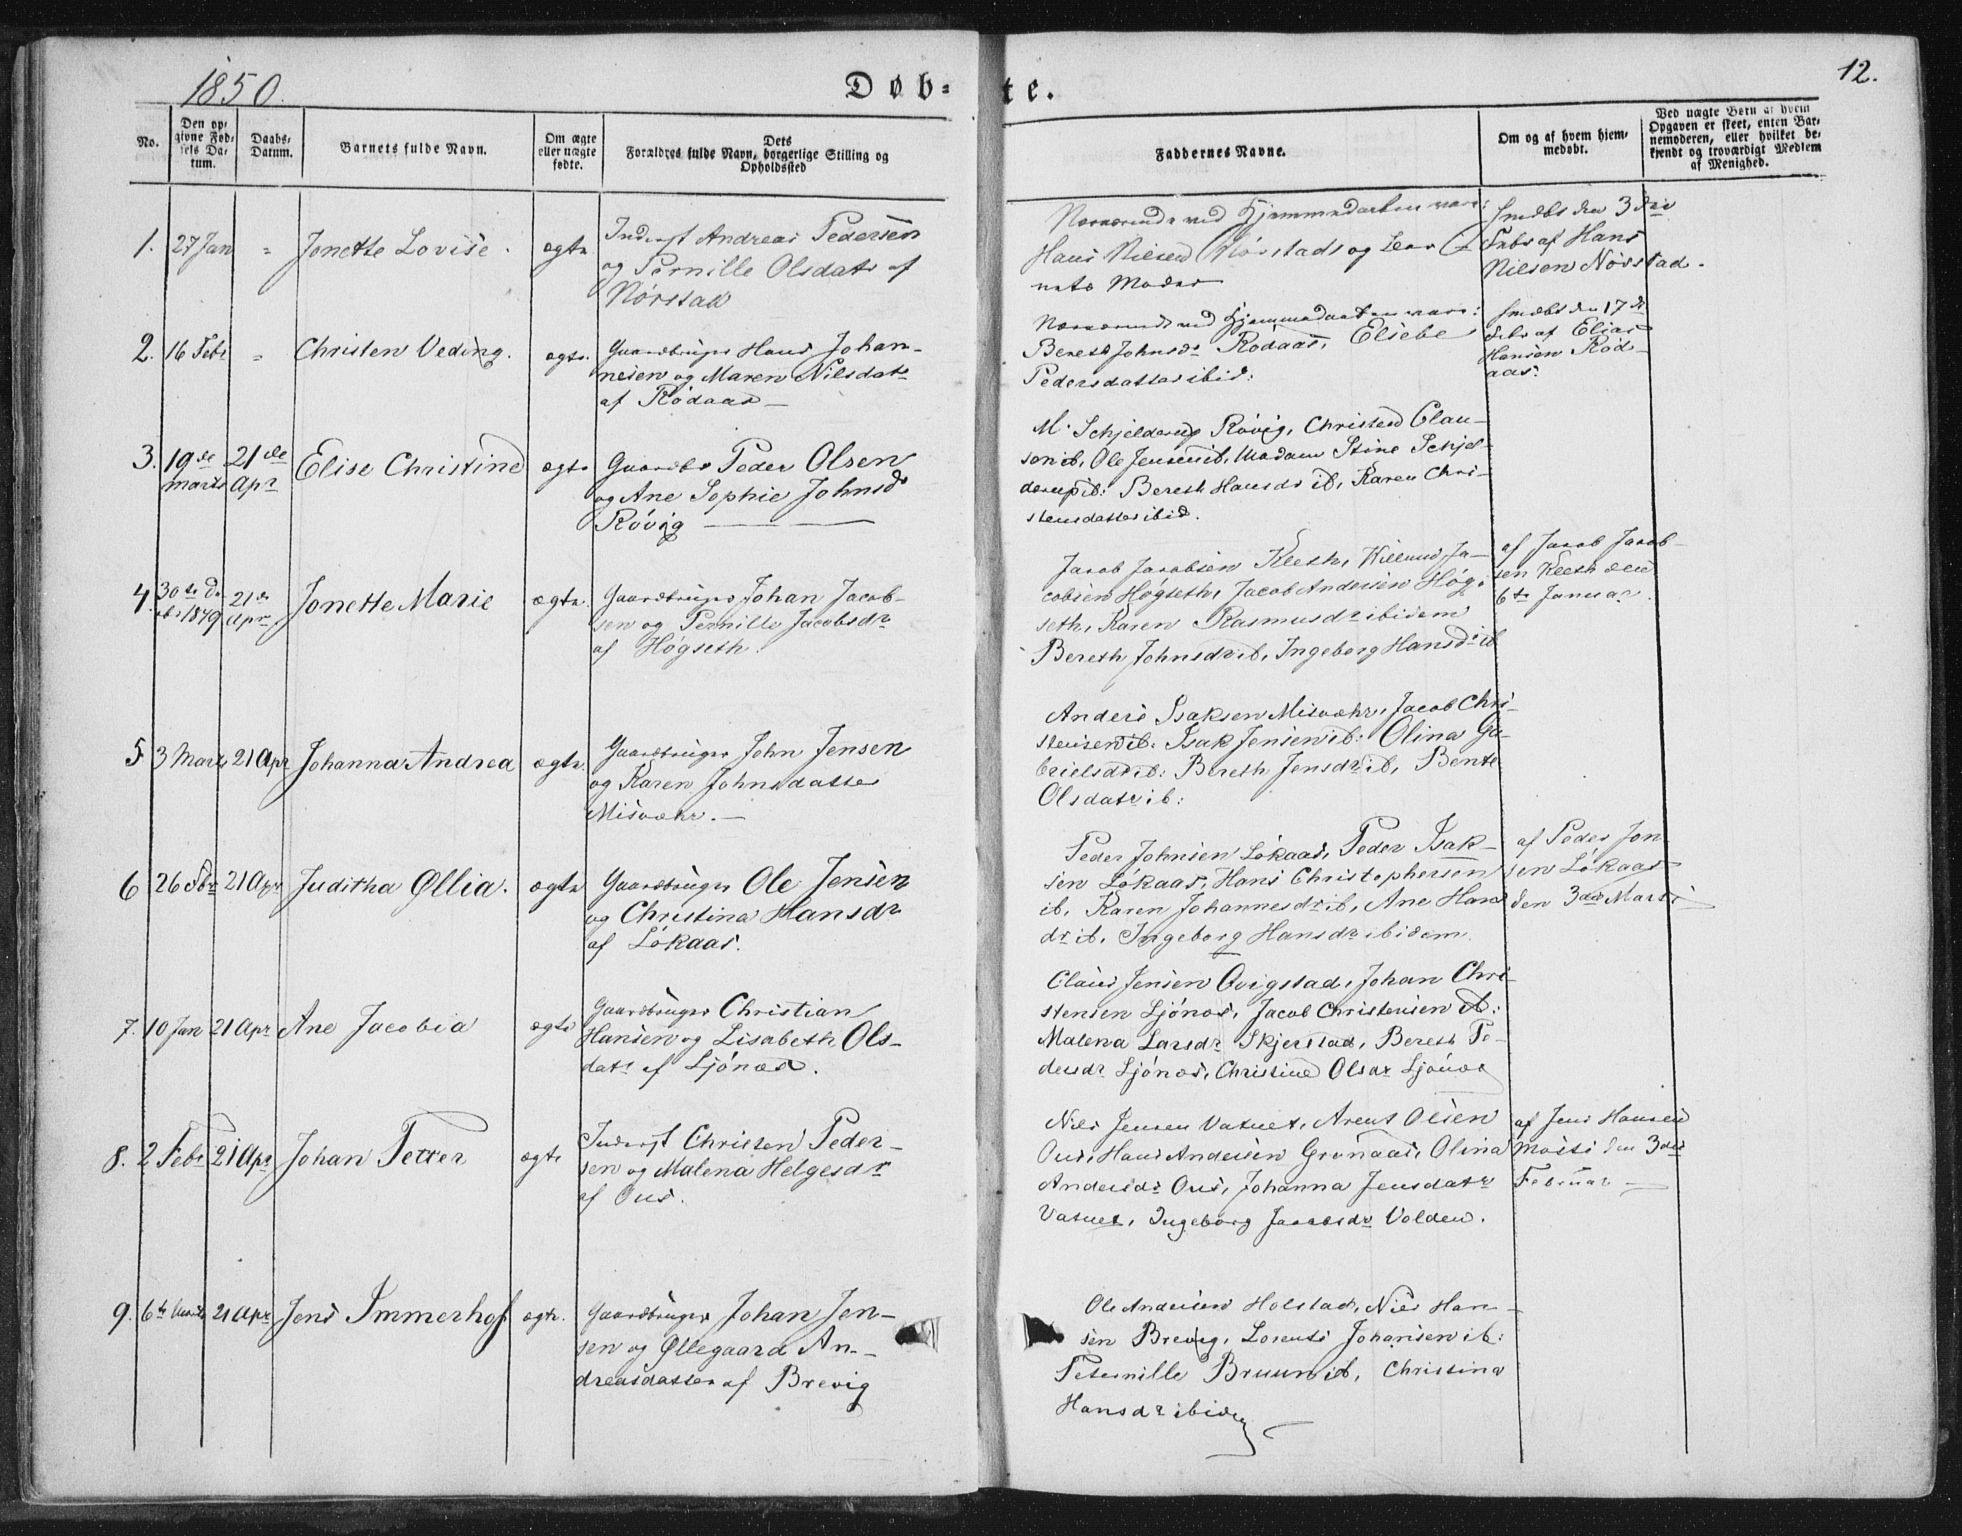 1850.
Døb=
te.
12.
No.
Den op=
givne Fød=
sels Da=
tum.
Daabs=
Datum.
Barnets fulde Navn.
Om ægte
eller uægte
fødte.
Dets
Forældres fulde Navn, borgerlige Stilling og
Opholdssted
Faddernes Navne.
Om og af hvem hjem=
medøbt.
Ved uægte Børn af hvem
Opgaven er skeet, enten Bar=
nemoderen, eller hvilket be=
kjendt og troværdigt Medlem
af Menighed.
1. 27 Jan " Jonette Lovise. ægte
Inderst Andreas Pedersen
og Pernille Olsdatr af
Nørstad
Nærværende ved Hjemmedaaben vare:
Hans Nilsen Nørstad og
nets Moder
hmdbt den 3die
Febr af Hans
Nilsen Nørstad.
2. 16 Febr " Christen Veding. ægte.
Gaardbruger Hans Johan-
nesen og Maren Nilsdatr
af Rødaas
Nærværende ved Hjemmedaaben vare:
Bereth Johnsdr Rødaas, Elsebe
Pedersdatter ibid:
hmdbt den 17de
Febr af Elias
Hansen Rød-
aas.
3. 19de Marts 21de Apr Elise Christine ægte
Gaardbr Peder Olsen
og Ane Sophie Johnsdr
Røvig
M. Schjelderup Røvig, Christen Clau-
sen ib, Ole Jensen ib, Madam Stine Schjel-
derup ib: Bereth Hansdr ib, Karen Chri-
stensdatter ibid.
4. 30te De
cbr 1849 21de Apr Jonette Marie ægte.
Gaardbruger Johan Jacob-
sen og Pernille Jacobsdr
af Høgseth.
Jacob Jacobsen Kleth, Ja-
cobsen Høgseth, Jacob Andersen Høg-
seth, Karen Rasmusdr ibidem
Bereth Johnsdr ib, Ingeborg Hansdr ib
af Jacob Jacob-
sen Kleth den
6te Januar.
5 3 Marts 21 Apr Johanna Andrea ægte.
Gaardbruger John Jensen
og Karen Johnsdatter
Misvær.
Anders Isaksen Misvær, Jacob Chri-
stensen ib: Isak Jensen ib: Olina Ga-
brielsdr ib: Bereth Jensdr ib, Bente
Olsdatr ib:
6 26 Fbr 21 Apr Juditha Øllia. ægte
Gaardbruger Ole Jensen
og Christina Hansdr
af Løkaas.
Peder Johnsen Løkaas, Peder Isak-
sen Løkaas, Hans Christophersen
ib, Karen Johannesdr ib, Ane Hans
dr ib, Ingeborg Hansdr ibidem
af Peder Jon
sen Løkaas
den 3die Marts
7. 10 Jan 21 Apr Ane Jacobia ægte
Gaardbruger Christian
Hansen og Lisabeth Ols-
datr af Ljønæs.
Claus Jensen Qvigstad, Johan Chri-
stensen Ljønæs, Jacob Christensen ib:
Malena Larsdr Skjerstad, Bereth Pe-
dersdr Ljønæs, Christine Olsdr Ljønæs
8. 2 Febr 21 Apr Johan Petter ægte
Inderst Christen Peder-
sen og Malena Helgesdr
af Ous.
Nils Jensen Vatnet, Arent Olsen
Ous, Hans Andersen Grønaas, Olina
Andersdr Ous, Johanna Jensdatr
Vatnet, Ingeborg Jacobsdr Volden.
af Jens Hansen
den 3die
Februar
9. 6te Marts 21 Apr Jens Immerhof ægte.
Gaardbruger Johan Jen-
sen og Øllegaard An-
dreasdatter af Brevig
Ole Andersen Holstad, Nils Han-
sen Brevig, Lorents Johansen ib:
Peternille Bruun ib, Christina
Hansdr ibidem